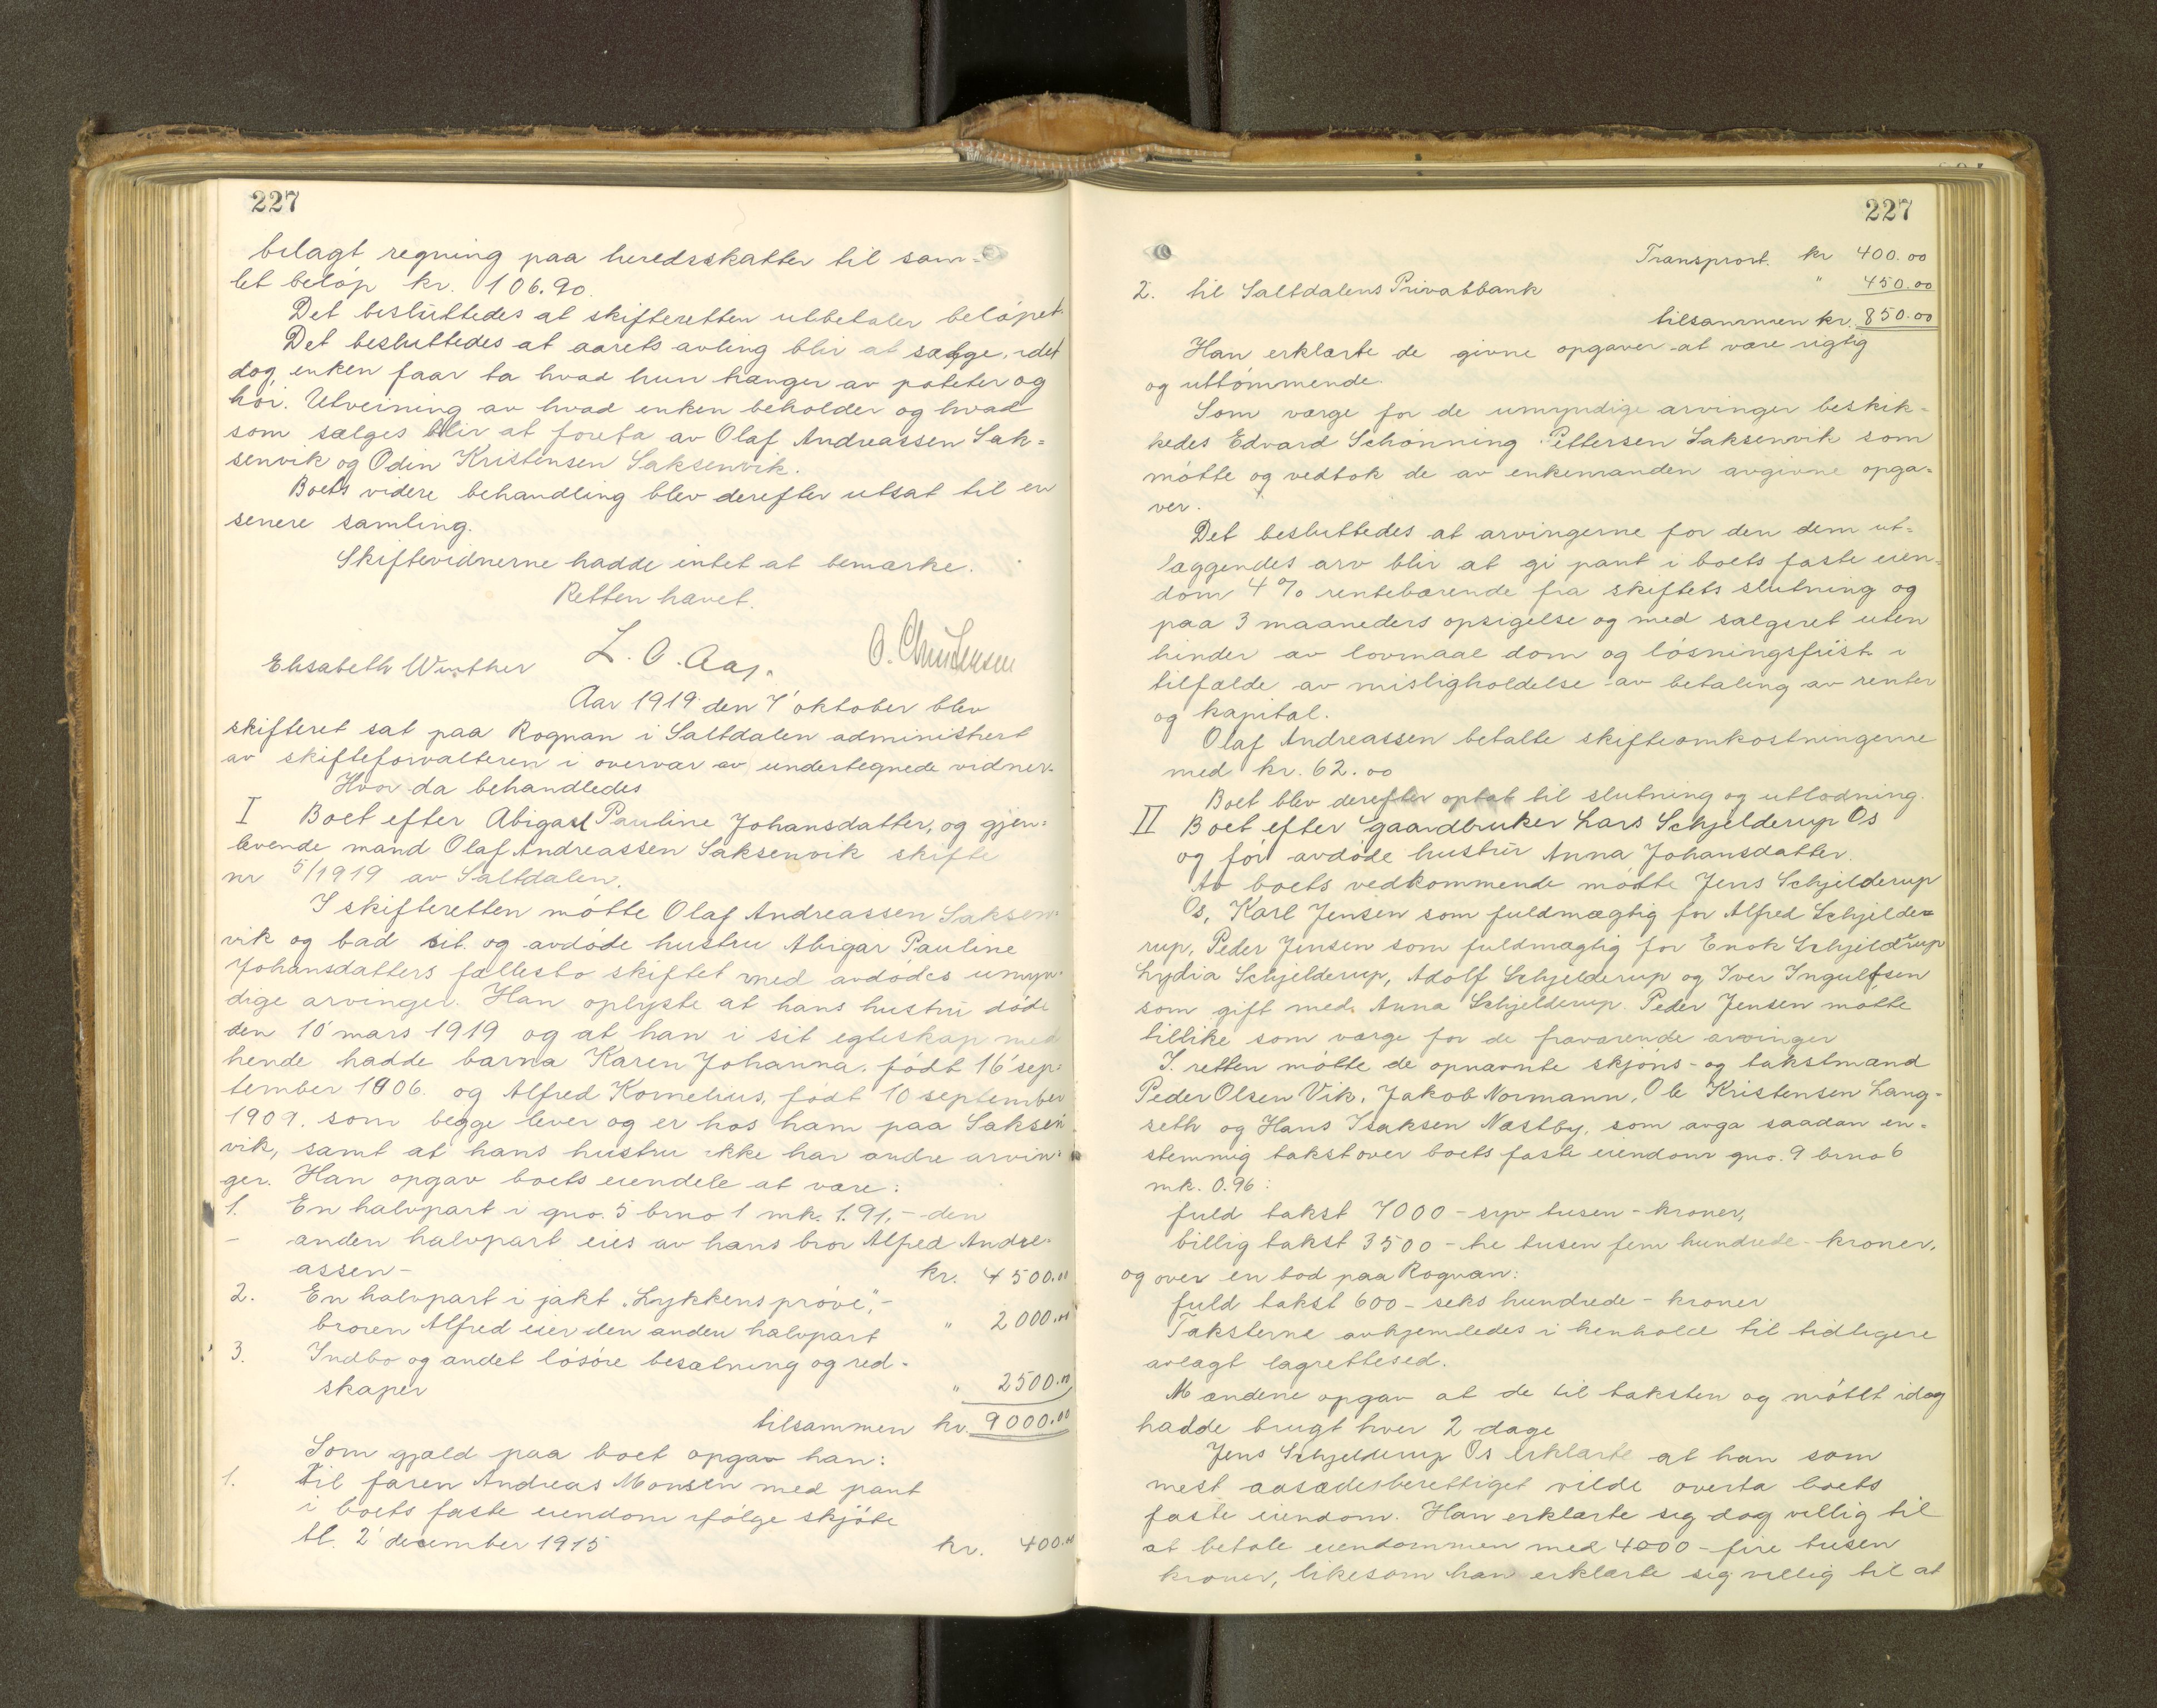 227
bilagt regning paa heredsskatter til sam-
let beløp kr. 106.90.
Det besluttedes at skifteretten utbetaler beløpet.
Det besluttedes at aarets avling blir at sælge, idet
dog enken faar ta hvad hun trænger av poteter og
høi. Utveining av hvad enken beholder og hvad
som sælges blir at foreta av Olaf Andreassen Sak=
senvik og Odin Kristensen Saksenvik.
Boets videre behandling blev derefter utsat til en
senere samling.
Skiftevidnerne hadde intet at bemærke.
Retten hævet.
Elisabeth Winther L. O. Aas. O. Christensen
Aar 1919 den 7' oktober blev
skifteret sat paa Rognan i Saltdalen administrert
av skifteforvalteren i overvær av undertegnede vidner.
Hvor da behandledes
I Boet efter Abigael Pauline Johansdatter, og gjen=
levende mand Olaf Andreassen Saksenvik skifte
nr 5/1919 av Saltdalen.
I skifteretten møtte Olaf Andreassen Saksen=
vik og bad sit og avdøde hustru Abigar Pauline
Johansdatters fællesbo skiftet med avdødes umyn=
dige arvinger. Han oplyste at hans hustru døde
den 10' mars 1919 og at han i sit egteskap med
hende hadde barna Karen Johanna, født 16' sep=
tember 1906. og Alfred Kornelius, født 10 september
1909. som begge lever og er hos ham paa Saksen
vik, samt at hans hustru ikke har andre arvin=
ger. Han opgav boets eiendele at være:
1. En halvpart i gno. 5 brno 1 mk. 1.91, - den
- anden halvpart eies av hans bror Alfred Andre=
assen - kr. 4500.00
2. En halvpart i jakt „Lykkens prøve", -
broren Alfred eier den anden halvpart " 2000.00
3. Indbo og andet løsøre besætning og red-
skaper " 2500.00
tilsammen kr. 9000.00
Som gjæld paa boet opgav han:
1. til faren Andreas Monsen med pant
i boets faste eiendom ifølge skjøte
tl. 2' december 1915 kr. 400.00
227
Transport. kr 400.00
2. til Saltdalens Privatbank " 450.00
tilsammen kr. 850.00
Han erklærte de givne opgaver at være rigtig
og uttømmende.
Som værge for de umyndige arvinger beskik-
kedes Edvard Schønning Pettersen Saksenvik som
møtte og vedtok de av enkemanden avgivne opga=
ver.
Det besluttedes at arvingerne for den dem ut=
læggendes arv blir at gi pant i boets faste eien=
dom 4% rentebærende fra skiftets slutning og
paa 3 maaneders opsigelse og med salgsret uten
hinder av lovmaal dom og løsningsfrist i
tilfælde av misligholdelse av betaling av renter
og kapital.
Olaf Andreassen betalte skifteomkostningerne
med kr. 62.00
Boet blev derefter optat til slutning og utlodning.
II Boet efter gaardbruker Lars Schjelderup Os
og før avdøde hustru Anna Johansdatter.
Av boets vedkommende møtte Jens Schjelderup
Os, Karl Jensen som fuldmægtig for Alfred Schjelde=
rup, Peder Jensen som fuldmægtig for Enok Schjelderup
Lydia Schjelderup, Adolf Schjelderup og Iver Ingulfsen
som gift med Anna Schjelderup. Peder Jensen møtte
tillike som værge for de fraværende arvinger
I retten møtte de opnævnte skjøns- og takstmænd
Peder Olsen Vik, Jakob Normann, Ole Kristensen Lang-
seth og Hans Isaksen Næstby, som avga saadan en=
stemmig takst over boets faste eiendom gno. 9 brno 6
mk. 0.96:
fuld takst 7000 - syv tusen - kroner,
billig takst 3500 - tre tusen fem hundrede - kroner,
og over en bod paa Rognan:
fuld takst 600 - seks hundrede - kroner
Taksterne avhjemledes i henhold til tidligere
avlagt lagrettesed.
Mændene opgav at de til taksten og møtet idag
hadde brugt hver 2 dage
Jens Schjelderup Os erklærte at han som
mest aasædesberettiget vilde overta boets
faste eiendom. Han erklærte sig dog villig til
at betale eiendommen med 4000 - fire tusen
kroner, likesom han erklærte sig villig til at